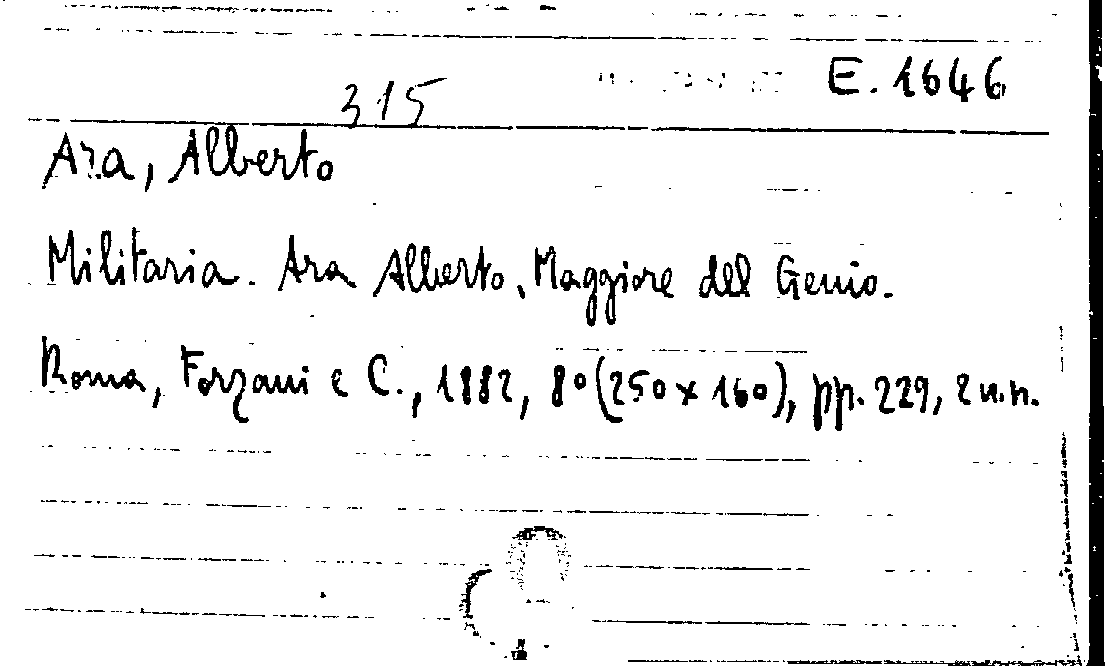 315 E. 1646
Ara, Alberto
Militaria. Ara Alberto, Maggiore del Genio.
Roma, Forzani e C., 1882, 8° (250 x 160), pp. 229, 2 n.n.